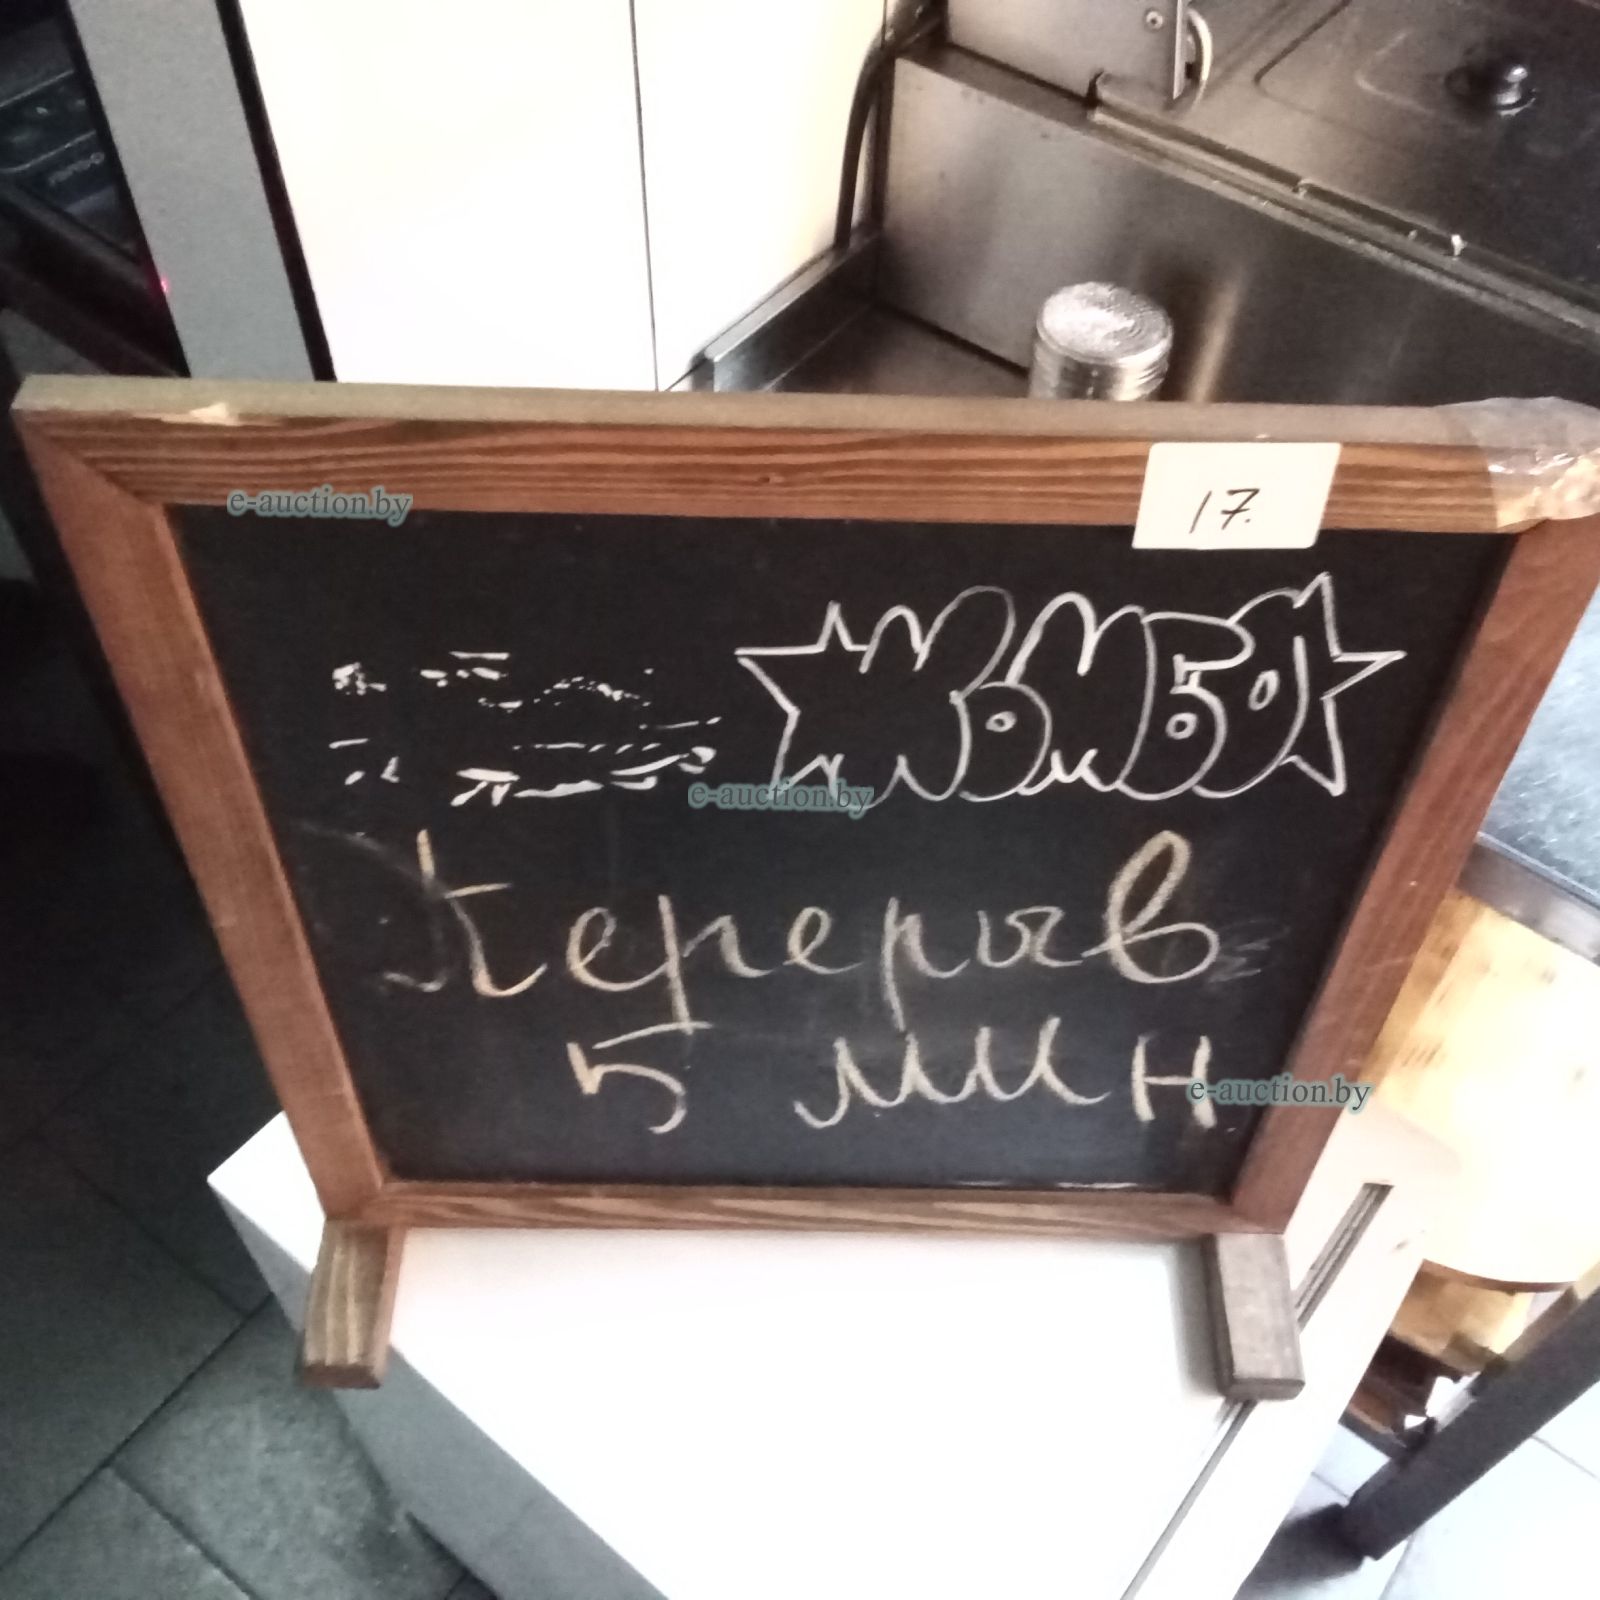 e-auction.by
17.
e-auction.by
Перерыв
5 мин
e-auction.by